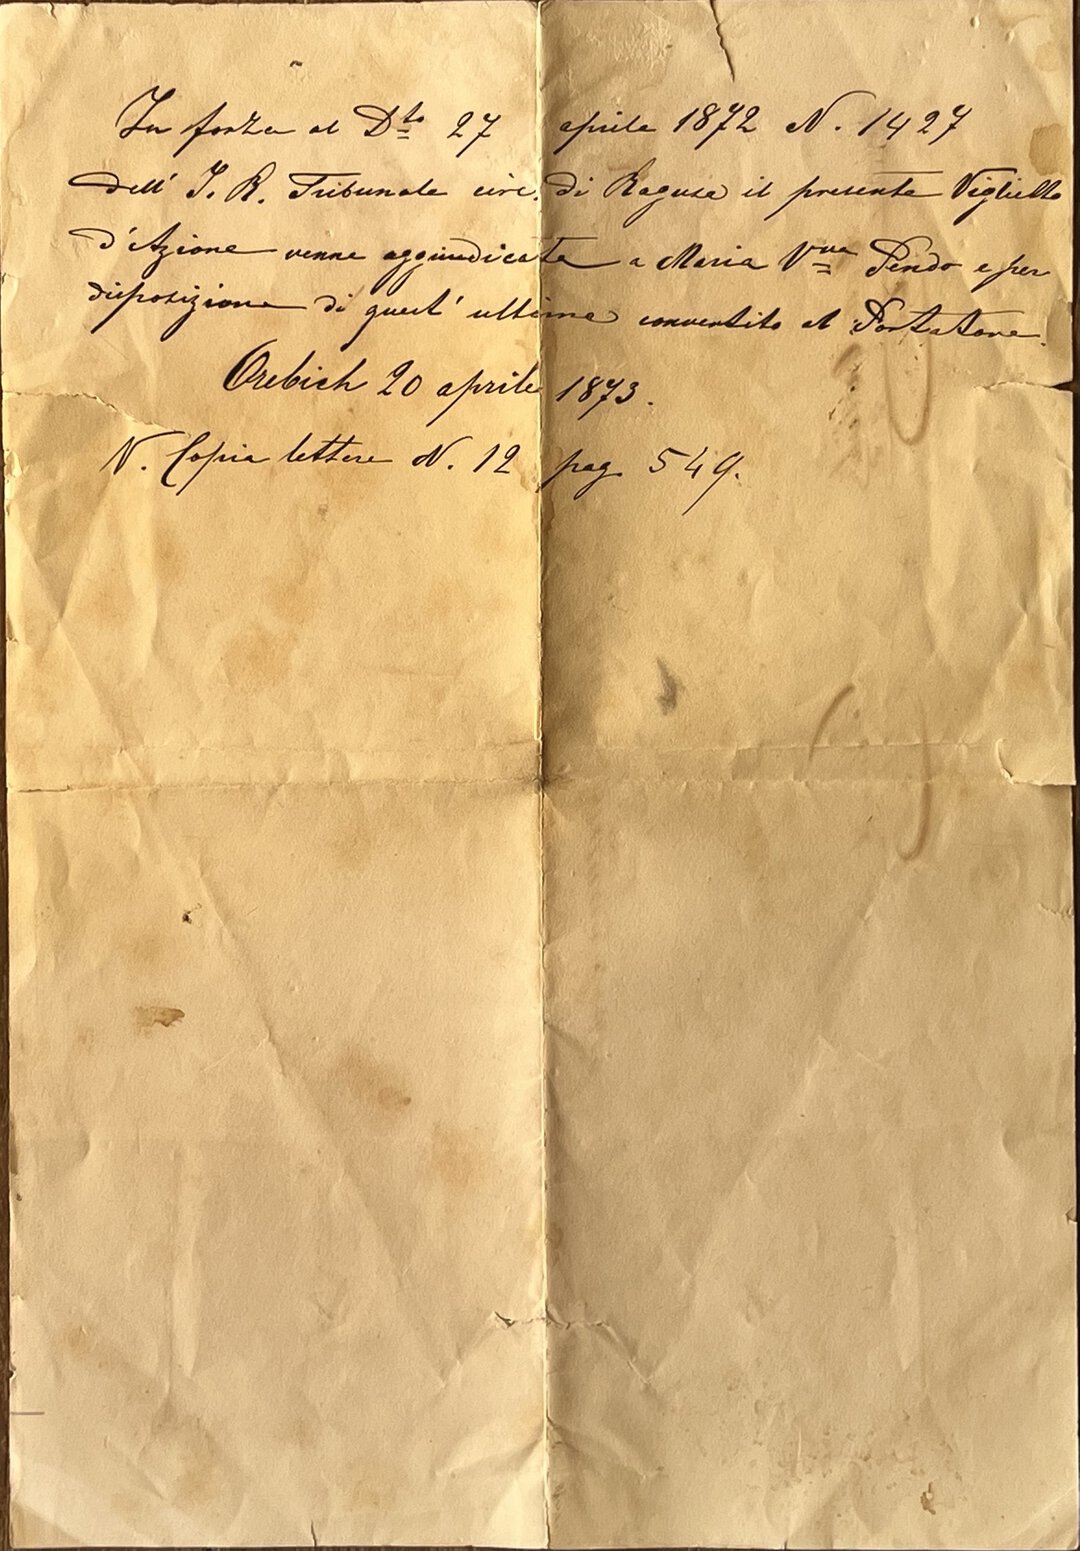 In forza al D.to 27 aprile 1872 N. 1427
dell' I. R. Tribunale circ. di Ragusa il presente Viglietto
d'Azione venne aggiudicato a Maria Vva Pendo e per
disposizione di quest' ultima convertito al Portatore.
Orebich 20 aprile 1873.
N. Copia lettere N. 12 pag. 549.